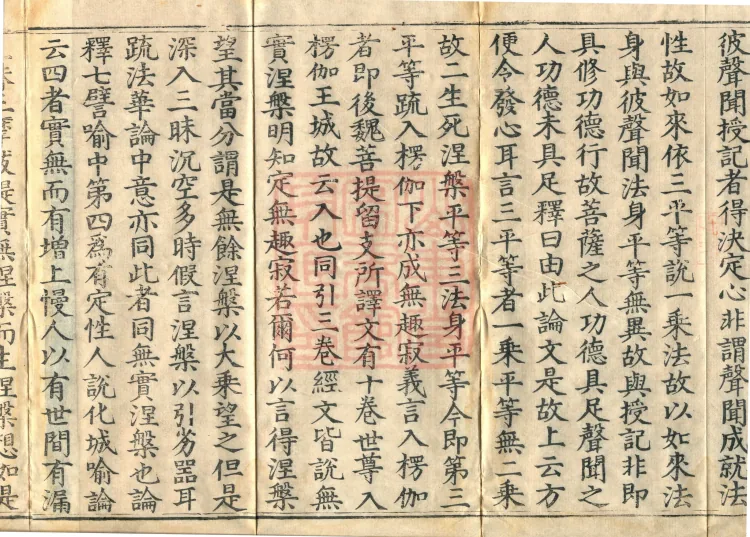 彼聲聞授記者得決定心非謂聲聞成就法
性故如來依三平等說一乘法故以如來法
身與彼聲聞法身平等無異故與授記非即
具修功德行故菩薩之人功德具足聲聞之
人功德未具足釋曰由此論文是故上云方
便令發心耳言三平等者一乘平等無二乘
故二生死涅槃平等三法身平等今即第三
平等疏入楞伽下亦成無趣寂義言入楞伽
者即後魏菩提留支所譯文有十卷世尊入
楞伽王城故云入也同引三卷經文皆說無
實涅槃明知定無趣寂若爾何以言得涅槃
望其當分謂是無餘涅槃以大乘望之但是
深入三昧沉空多時假言涅槃以引劣器耳
疏法華論中意亦同此者同無實涅槃也論
釋七譬喻中第四為有定性人說化城喻論
云四者實無而有增上慢人以有世間有漏
提實無涅槃而生涅槃想如是